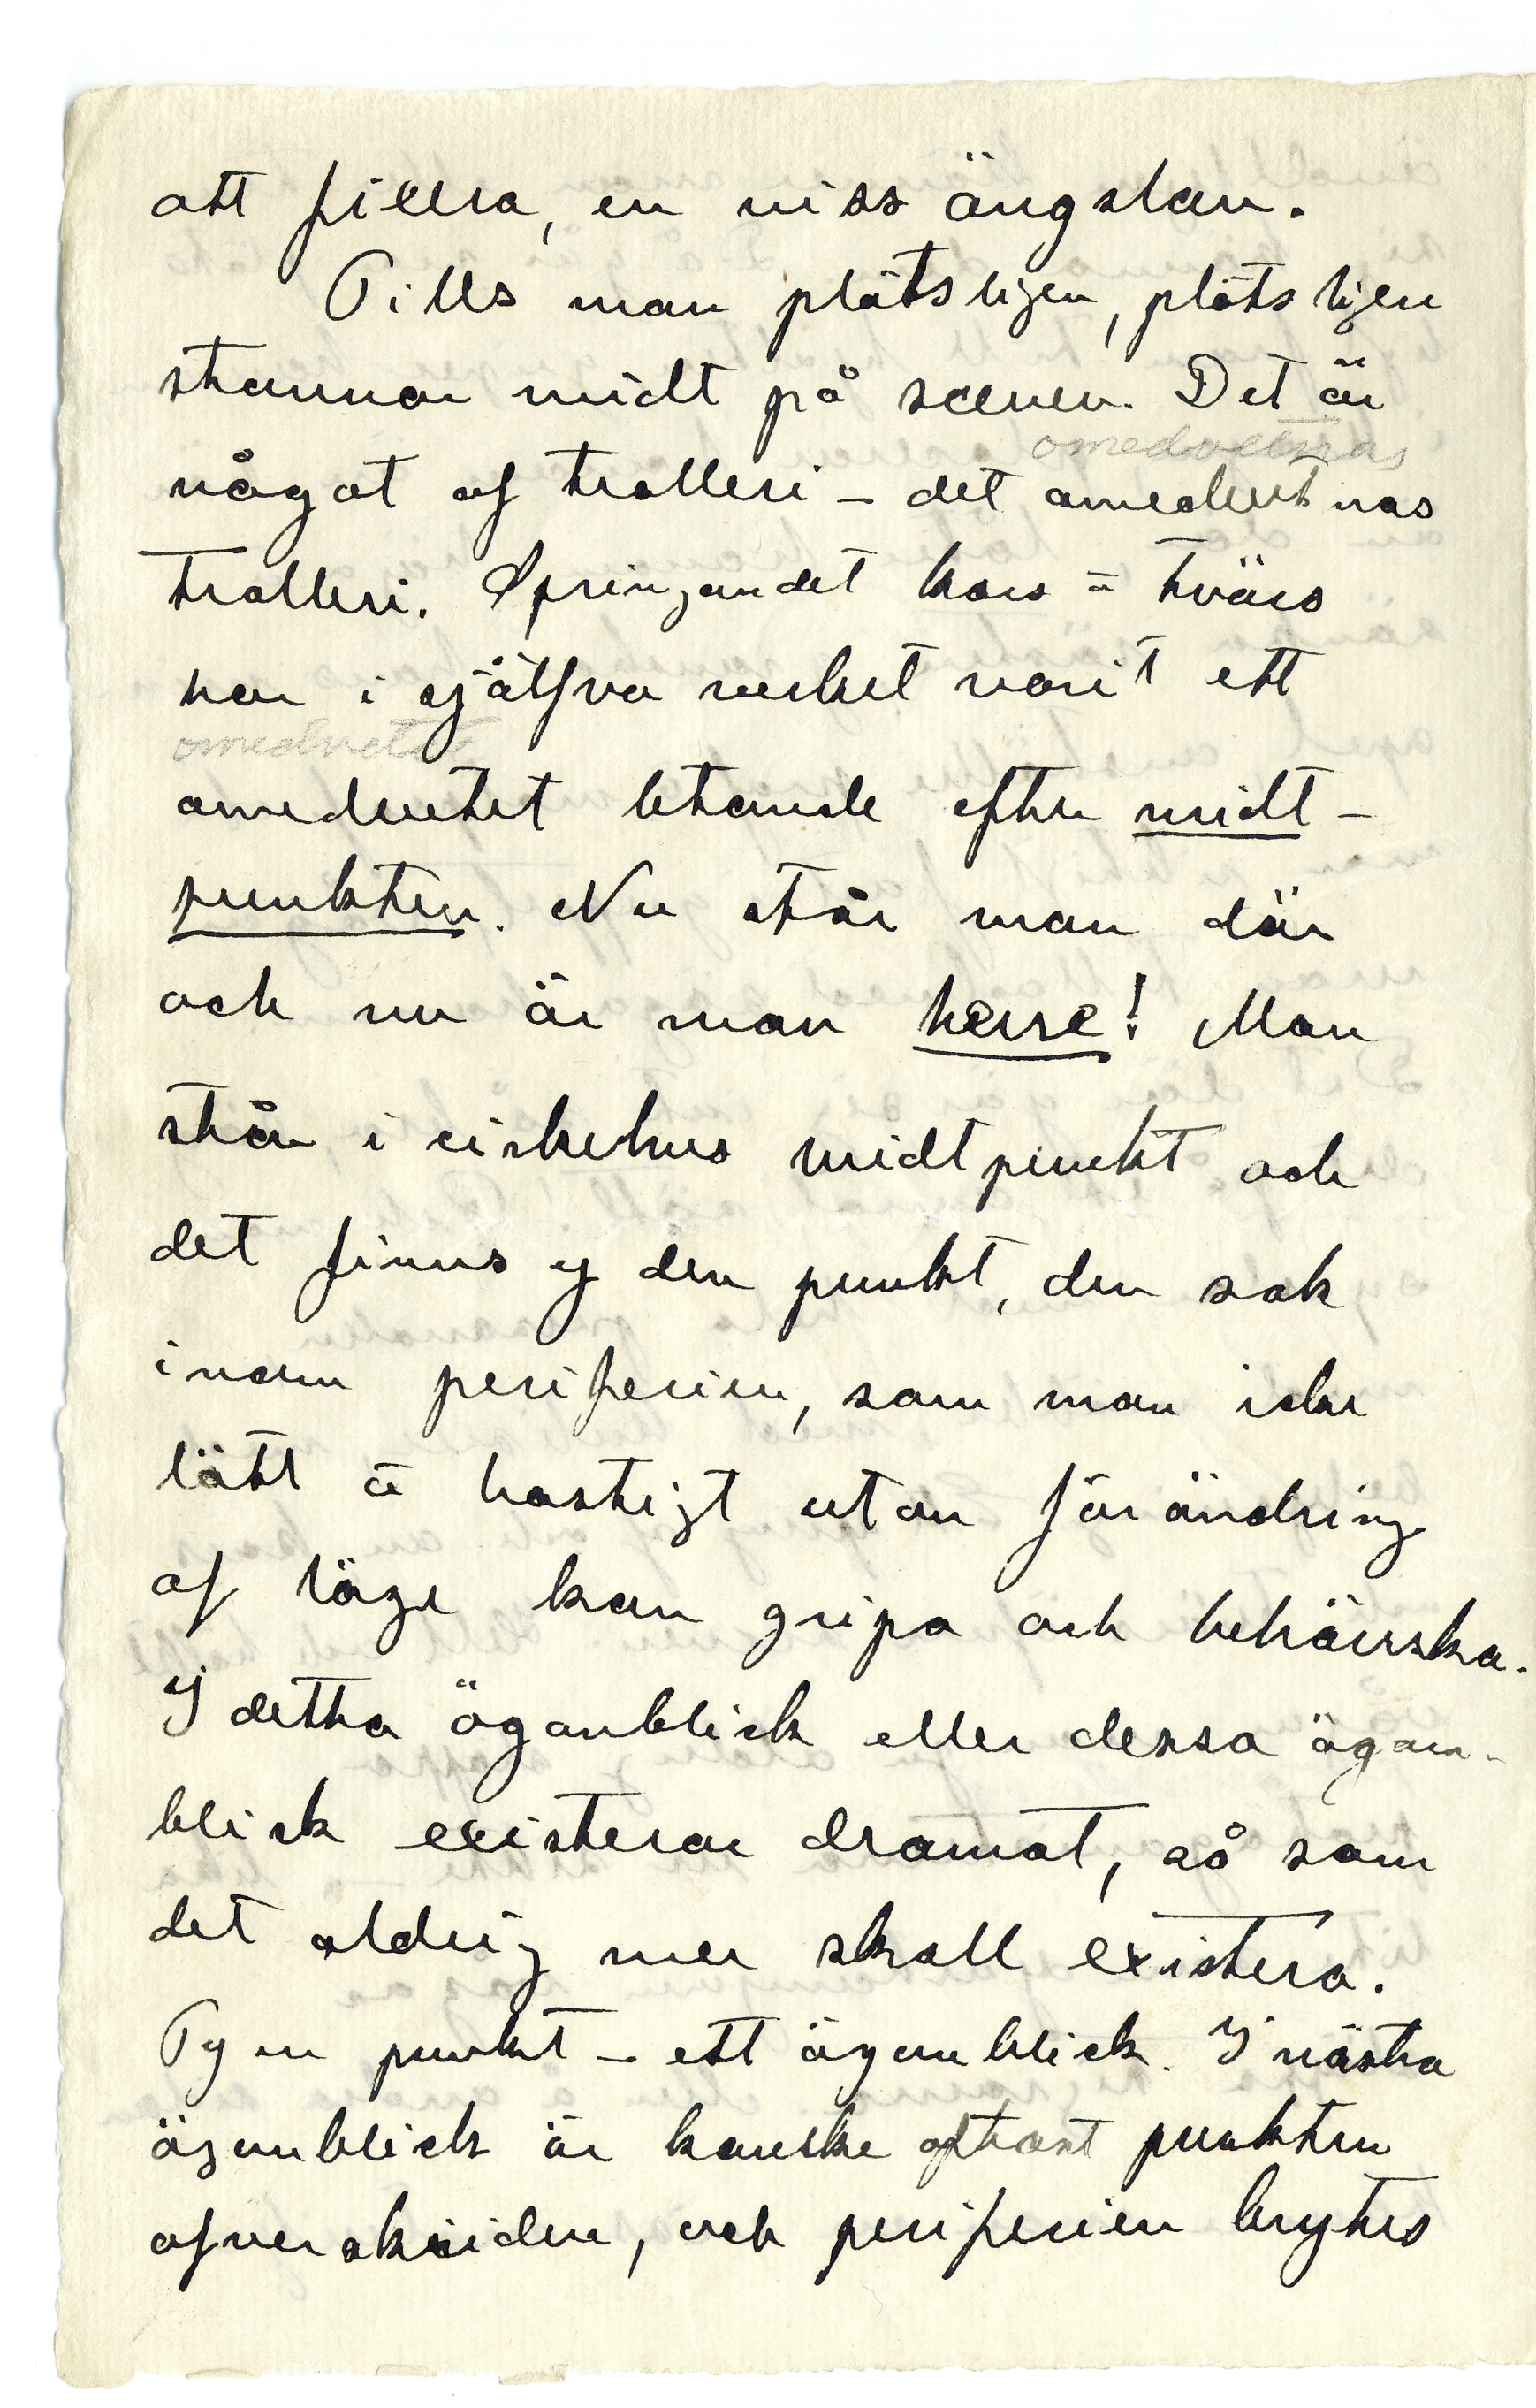 att fillra, en viss ängslan.
Tills man plötsligen, plötsligen
stannar midt på scenen. Det är
omedvetnas
något af trolleri – det omedvetnas
trolleri. Springandet kors o tvärs
har i själfva verket varit ett
omedvetet
omedvetet letande efter midt-
punkten. Nu står man där
och nu är man herre! Man
står i cirkelns midtpunkt och
det finns ej den punkt, den sak
inom periferien, som man icke
lätt o hastigt utan förändring
af läge kan gripa och behärska.
I detta ögonblick eller dessa ögon-
blick existerar dramat, så som
det aldrig mer skall existera.
Ty en punkt – ett ögonblick. I nästa
ögonblick är kanske oftast punkten
öfverskriden, och periferien brytes